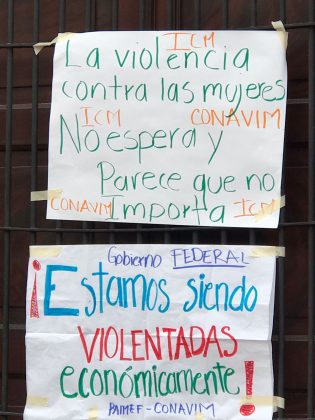 ICM
La violencia
contra las mujeres
ICM CONAVIM
No espera y
Parece que no
CONAVIM Importa ICM
Gobierno FEDERAL
¡Estamos siendo
VIOLENTADAS
económicamente!
PAIMEF-CONAVIM